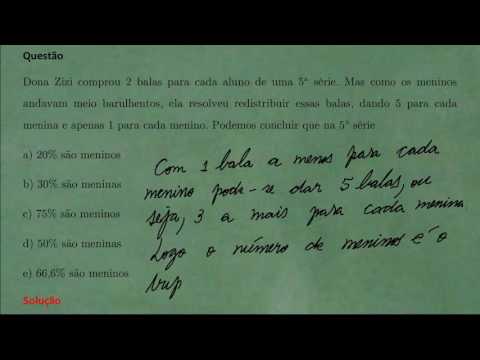 Questão
Dona Zizi comprou 2 balas para cada aluno de uma 5ª série. Mas como os meninos
andavam meio barulhentos, ela resolveu redistribuir essas balas, dando 5 para cada
menina e apenas 1 para cada menino. Podemos concluir que na 5ª série
a) 20% são meninos
b) 30% são meninas
c) 75% são meninos
d) 50% são meninas
e) 66,6% são meninos
Com 1 bala a menos para cada
menino pode-se dar 5 balas, ou
seja, 3 a mais para cada menina
Logo o número de meninos é o
trip
Solução